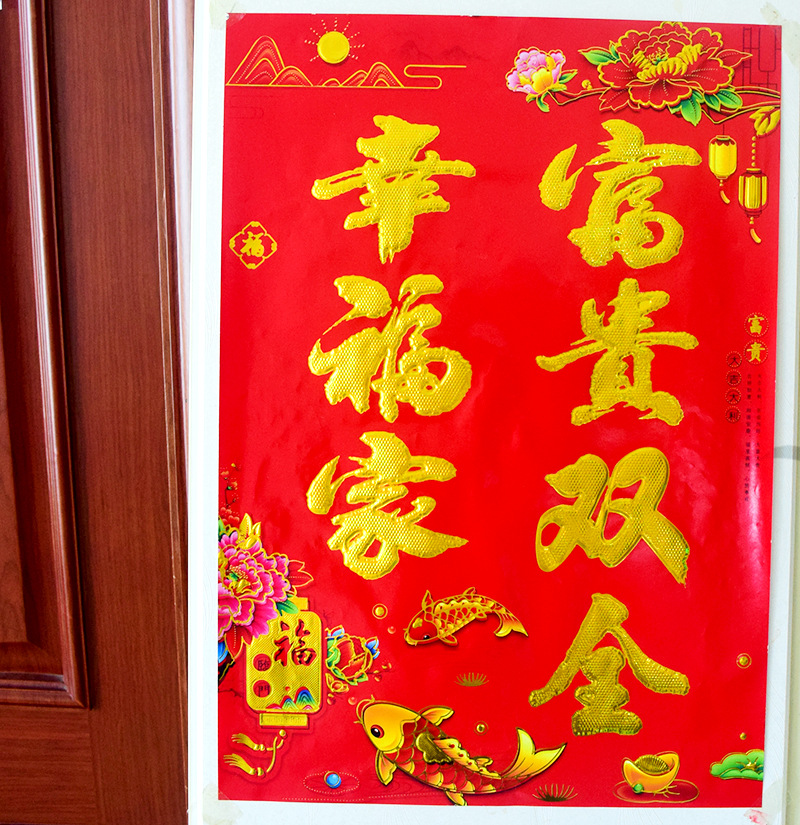 富贵双全
幸福家
富贵
大吉大利
福
福